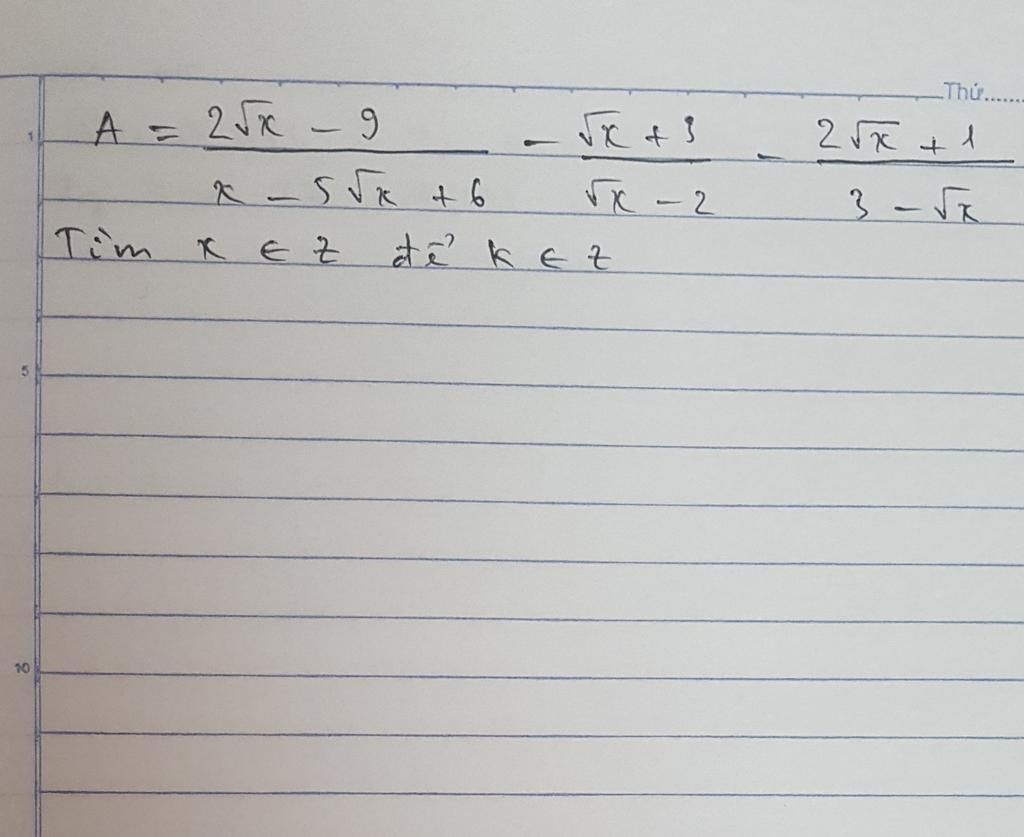 Thứ.......
1
A = \frac{2\sqrt{x} - 9}{x - 5\sqrt{x} + 6} - \frac{\sqrt{x} + 3}{\sqrt{x} - 2} - \frac{2\sqrt{x} + 1}{3 - \sqrt{x}}
Tìm x ∈ Z để k ∈ Z
5
10